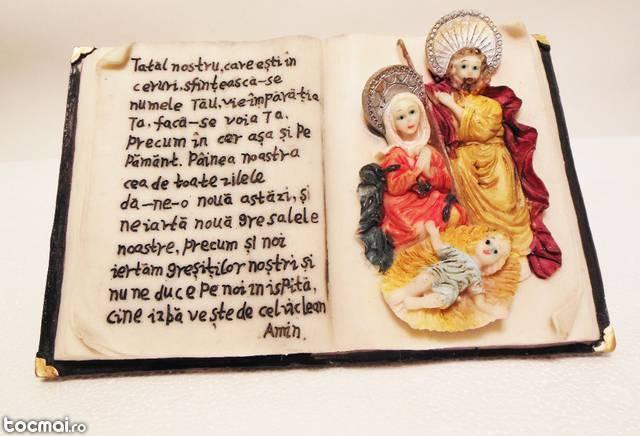 Tatăl nostru, care ești în
ceruri, sfințească-se
numele Tău, vie împărăția
Ta, facă-se voia Ta,
Precum în cer așa și Pe
Pământ. Pâinea noastra
cea de toate zilele
dă-ne-o nouă astăzi, și
ne iartă nouă gre șalele
noastre, precum și noi
iertăm greșiților noștri și
nu ne duce Pe noi în ispită,
cine izbă vește de cel viclean
Amin
tocmai.ro